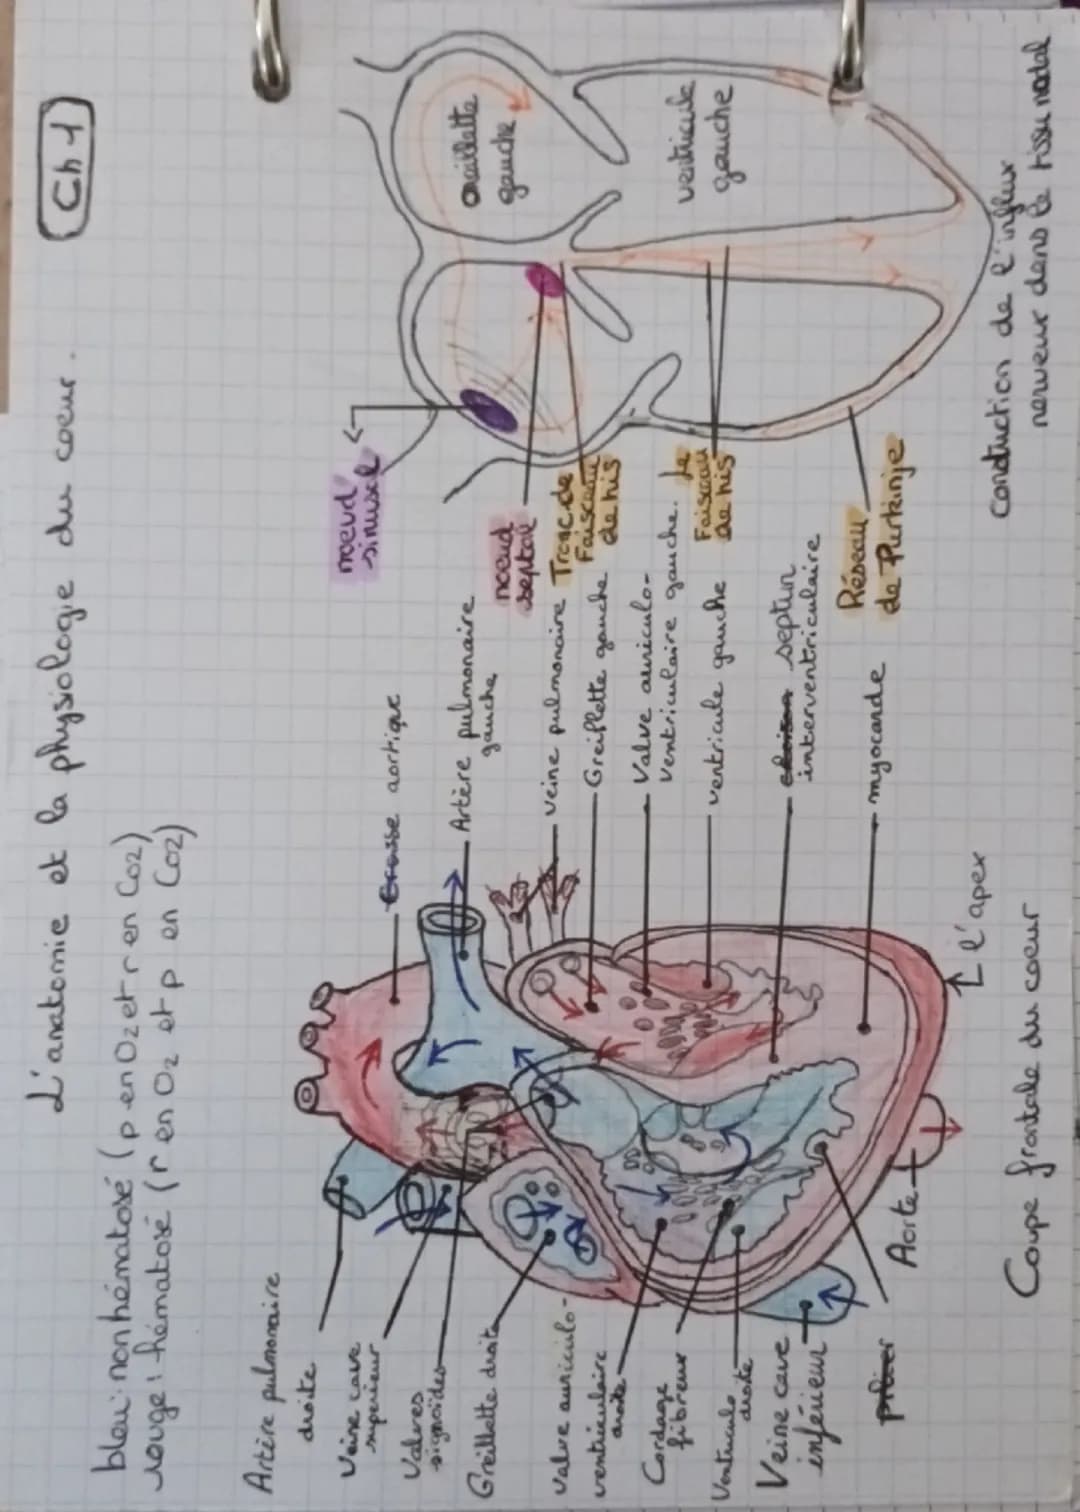 Ch 1
L'anatomie et la physiologie du coeur.
bleu: non hématosé (p en O2 et r en CO2)
rouge: hématosé (r en O2 et p en CO2)
Artère pulmonaire
droite
Veine cave
supérieur
Valves
sigmoïdes
Oreillette droite
Valve auriculo-
ventriculaire
droite
Cordage
fibreux
Ventricule
droite
Veine cave
inférieur
Aorte
l'apex
Crosse aortique
Artère pulmonaire
gauche
veine pulmonaire
Oreillette gauche
Valve auriculo-
ventriculaire gauche.
ventricule gauche
septum
interventriculaire
myocarde
Coupe frontale du coeur
noeud
sinusal
noeud
septal
Tronc de
Faisceau
de his
Le
Faisceau
de his
Réseau
de Purkinje
oreillette
gauche
ventricule
gauche
conduction de l'influx
nerveux dans le tissu nodal